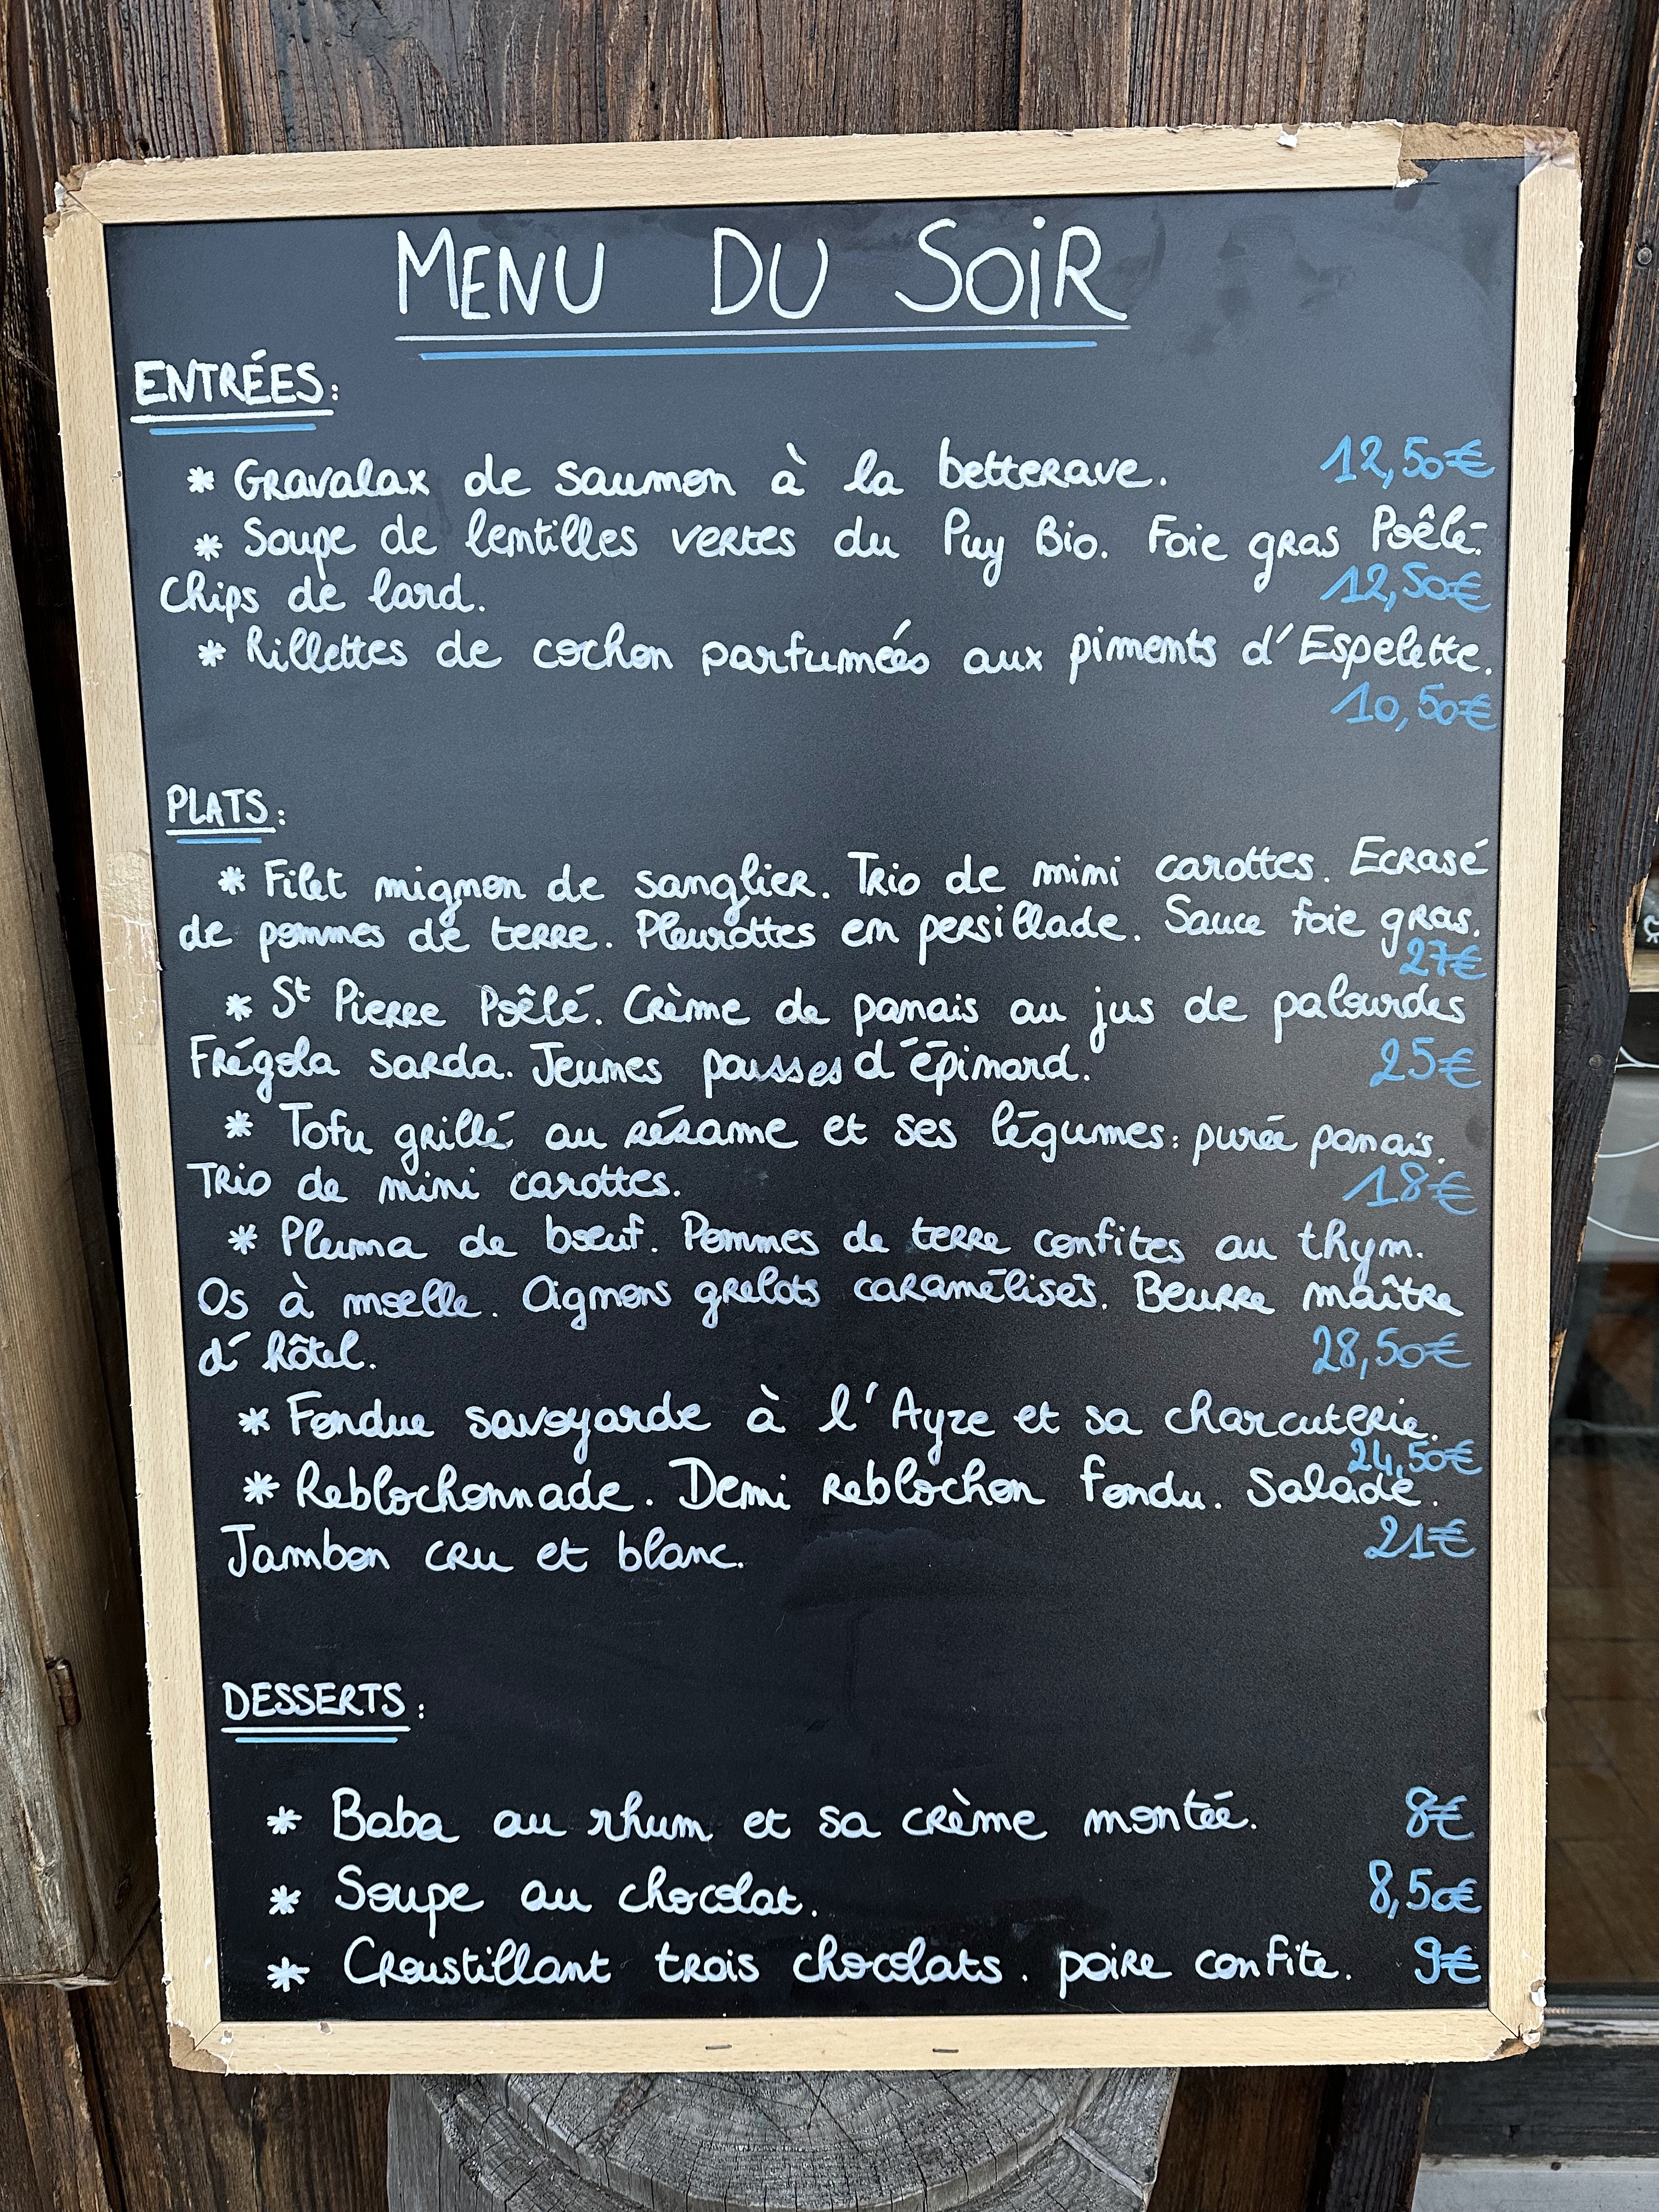 MENU DU SOIR
ENTRÉES:
* Gravalax de saumon à la betterave. 12,50€
* Soupe de lentilles vertes du Puy Bio. Foie gras Poêlé.
Chips de lard. 12,50€
* Rillettes de cochon parfumées aux piments d'Espelette.
10,50€
PLATS:
* Filet mignon de sanglier. Trio de mini carottes. Ecrasé
de pommes de terre. Pleurottes en persillade. Sauce foie gras.
27€
* St Pierre Poêlé. Crème de panais au jus de palourdes
Frégola sarda. Jeunes pousses d'épinard. 25€
* Tofu grillé au sésame et ses légumes: purée panais.
Trio de mini carottes. 18€
* Pluma de bœuf. Pommes de terre confites au thym.
Os à moelle. Oignons grelots caramélisés. Beurre maître
d'hôtel. 28,50€
* Fondue savoyarde à l'Ayze et sa charcuterie.
24,50€
* Reblochonnade. Demi reblochon fondu. Salade.
Jambon cru et blanc. 21€
DESSERTS:
* Baba au rhum et sa crème montée. 8€
* Soupe au chocolat. 8,50€
* Croustillant trois chocolats. poire confite. 9€